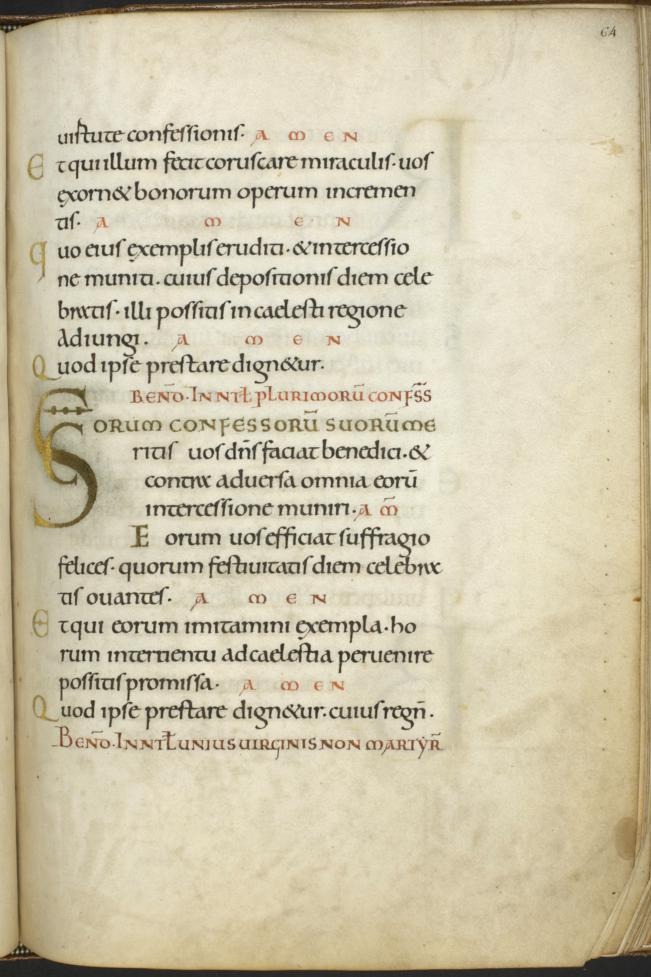 64
uirtute confessionis. A M E N
Et qui illum fecit coruscare miraculis. uos
exornet bonorum operum incremen
tis. A M E N
Quo eius exemplis eruditi. & intercessio
ne muniti. cuius depositionis diem cele
bratis. illi possitis in caelesti regione
Adiungi. A M E N
Quod ipse prestare dign&ur.
BEN̄D. IN NAT̄L PLURIMORŪ CONFSS̄
SORUM CONFESSORŪ SUORŪ ME
ritis uos dn̄s faciat benedici. &
contra aduersa omnia eorū
intercessione muniri. A M̄
Eorum uos efficiat suffragio
felices. quorum festiuitatis diem celebra
tis ouantes. A M E N
Et qui eorum imitamini exempla. ho
rum interuentu ad caelestia peruenire
possitis promissa. A M E N
Quod ipse prestare dign&ur. cuius regn̄.
BEN̄D. IN NAT̄L UNIUS UIRGINIS NON MARTYR̄